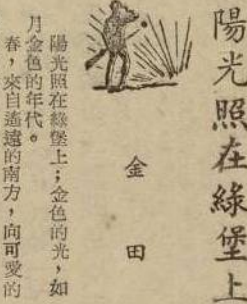 陽光照在綠堡上
金田
陽光照在綠堡上；金色的光，如
月金色的年代。
春，來自遙遠的南方，向可愛的